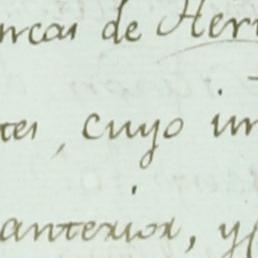 arcas de Her
tes, cuyo im
anterior, y